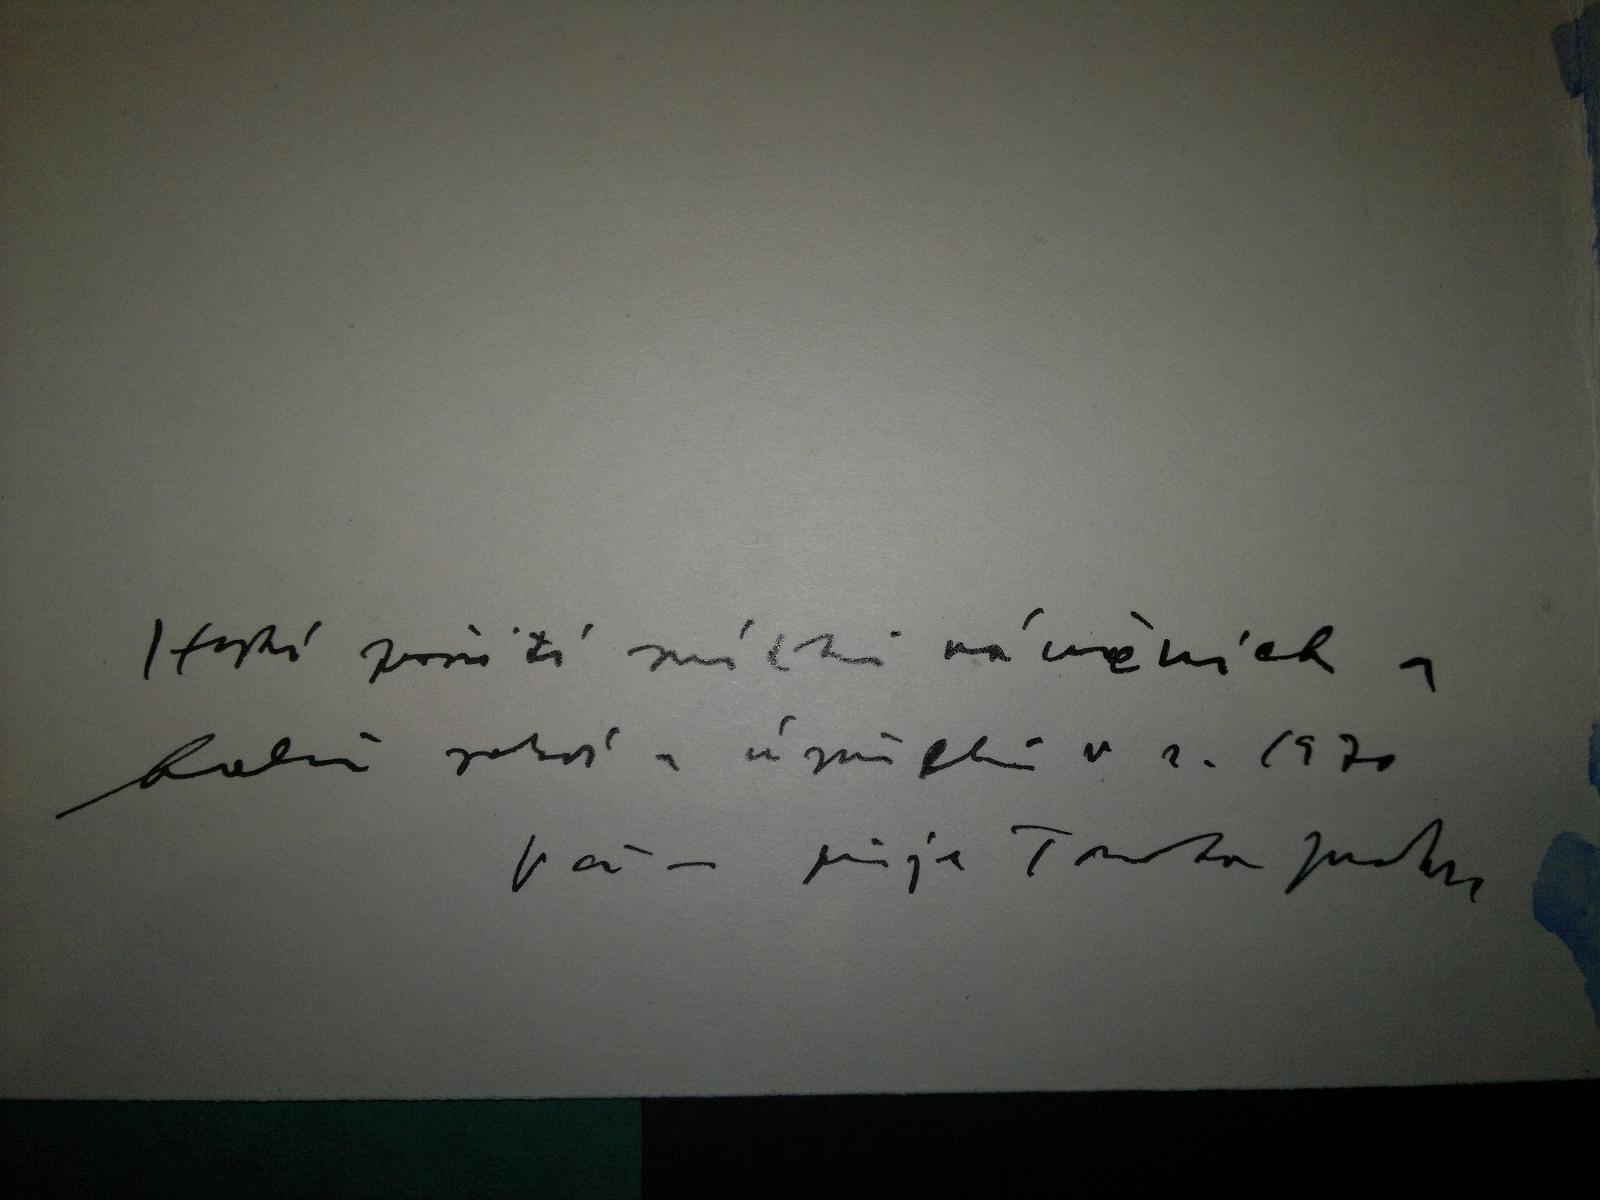 Hezké prožití svátků vánočních a
hodně zdraví a úspěchů v r. 1970
Vám přeje